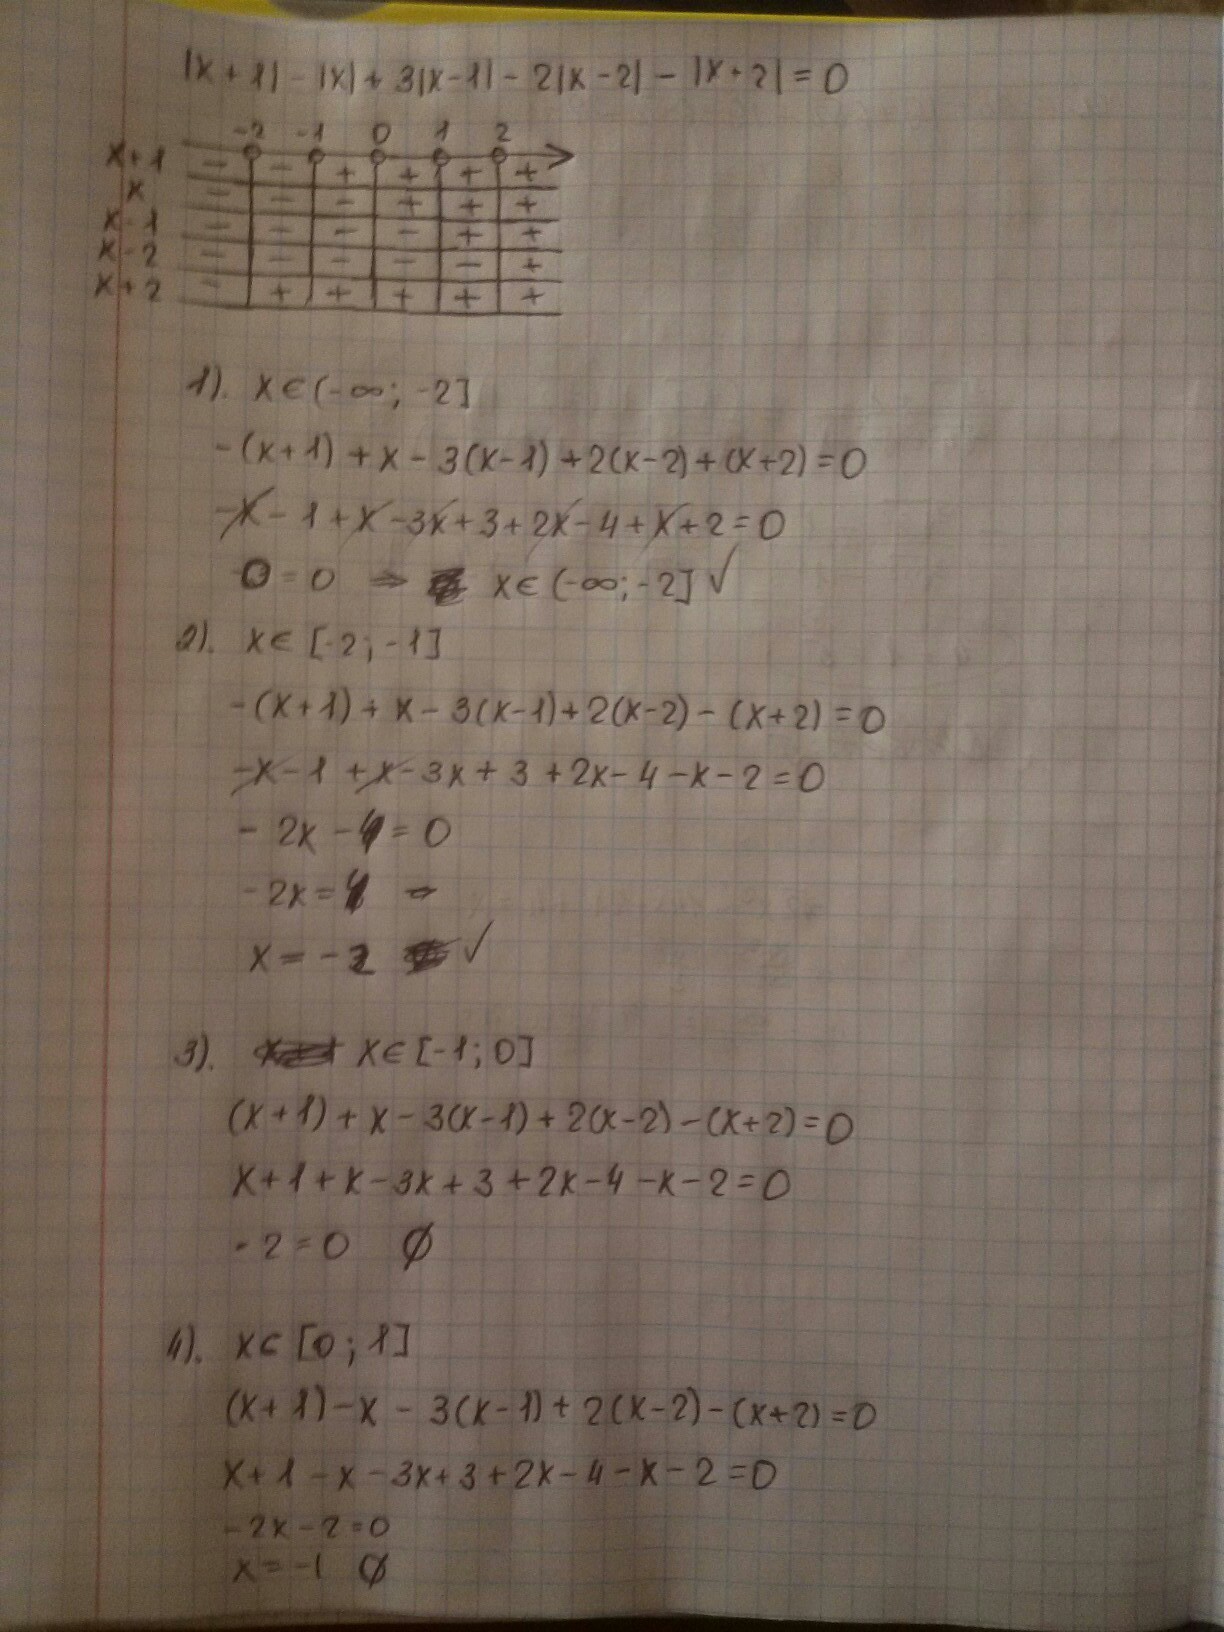 |x + 1| - |x| + 3|x-1| - 2|x-2| - |x+2| = 0
-2 -1 0 1 2
x+1 - - + + + +
x - - - + + +
x-1 - - - - + +
x-2 - - - - - +
x+2 - + + + + +
1). x∈(-∞; -2]
-(x+1) + x - 3(x-1) + 2(x-2) + (x+2) = 0
-x - 1 + x - 3x + 3 + 2x - 4 + x + 2 = 0
0 = 0 ⇒ x∈(-∞; -2] √
2). x∈ [-2; -1]
-(x+1) + x - 3(x-1) + 2(x-2) - (x+2) = 0
-x - 1 + x - 3x + 3 + 2x - 4 - x - 2 = 0
- 2x - 4 = 0
-2x = 4 ⇒
x = -2 √
3). x∈ [-1; 0]
(x+1) + x - 3(x-1) + 2(x-2) - (x+2) = 0
x+1+x-3x+3+2x-4-x-2=0
-2 = 0 ∅
4). x∈ [0; 1]
(x+1) - x - 3(x-1) + 2(x-2) - (x+2) = 0
x+1-x-3x+3+2x-4-x-2=0
-2x-2=0
x=-1 ∅